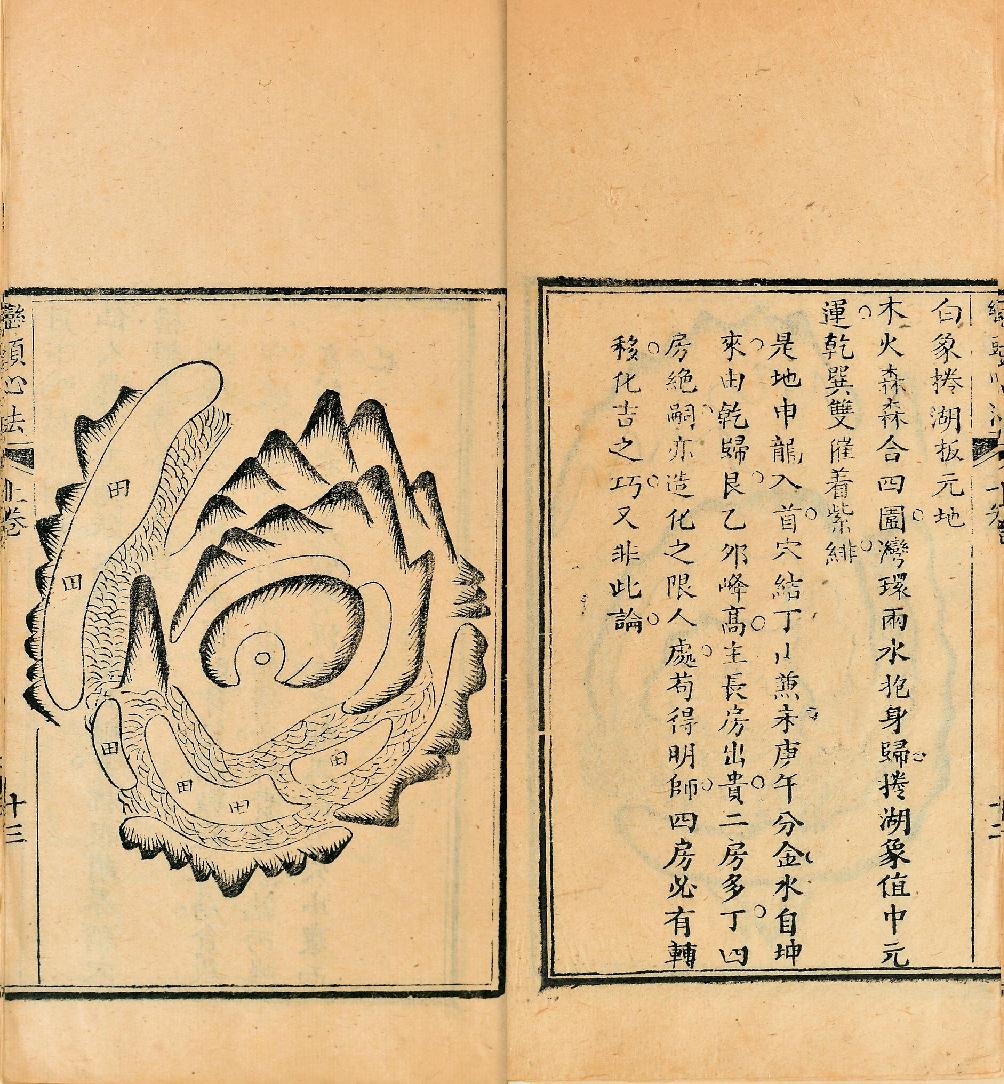 白象捲湖板元地
木火森森合四圍灣環兩水抱身歸捲湖象值中元
運乾巽雙催着紫緋
是地申龍入首穴結丁山兼未庚午分金水自坤
來由乾歸艮乙夘峰高主長房出貴二房多丁四
房絶嗣亦造化之限人處苟得明師四房必有轉
移化吉之巧又非此論
巒頭心法
上卷
十三
田
田
田
田
田
田